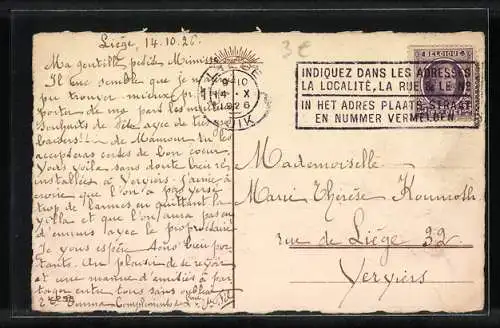 Liège, 14.10.26
Ma gentille petite Mimi
Il me semble que je n'
pu trouver mieux p
porter de ma part les meill
Souhaits de fête avec de tr
baisers! de Mamour tu les
accepteras certes de bon cœur.
Vous voilà sans doute bien ré
installées à Verviers j'aime à
croire que l'on n'a pas versé
trop de larmes en quittant la
villa et que l'on n'aura pas eu
d'ennuis avec le propriétaire
Je vous espère bien por
tante. Au plaisir de se revoir
et une manne d'amitiés à par
tager entre tous sans oublier
3€
LIÈGE
9-10
14-X
1926
LUIK
BELGIQUE
INDIQUEZ DANS LES ADRESSES
LA LOCALITÉ, LA RUE & LE Nº
IN HET ADRES PLAATS, STRAAT
EN NUMMER VERMELDEN
Mademoiselle
Marie Thérèse
rue de Liège 32
Verviers